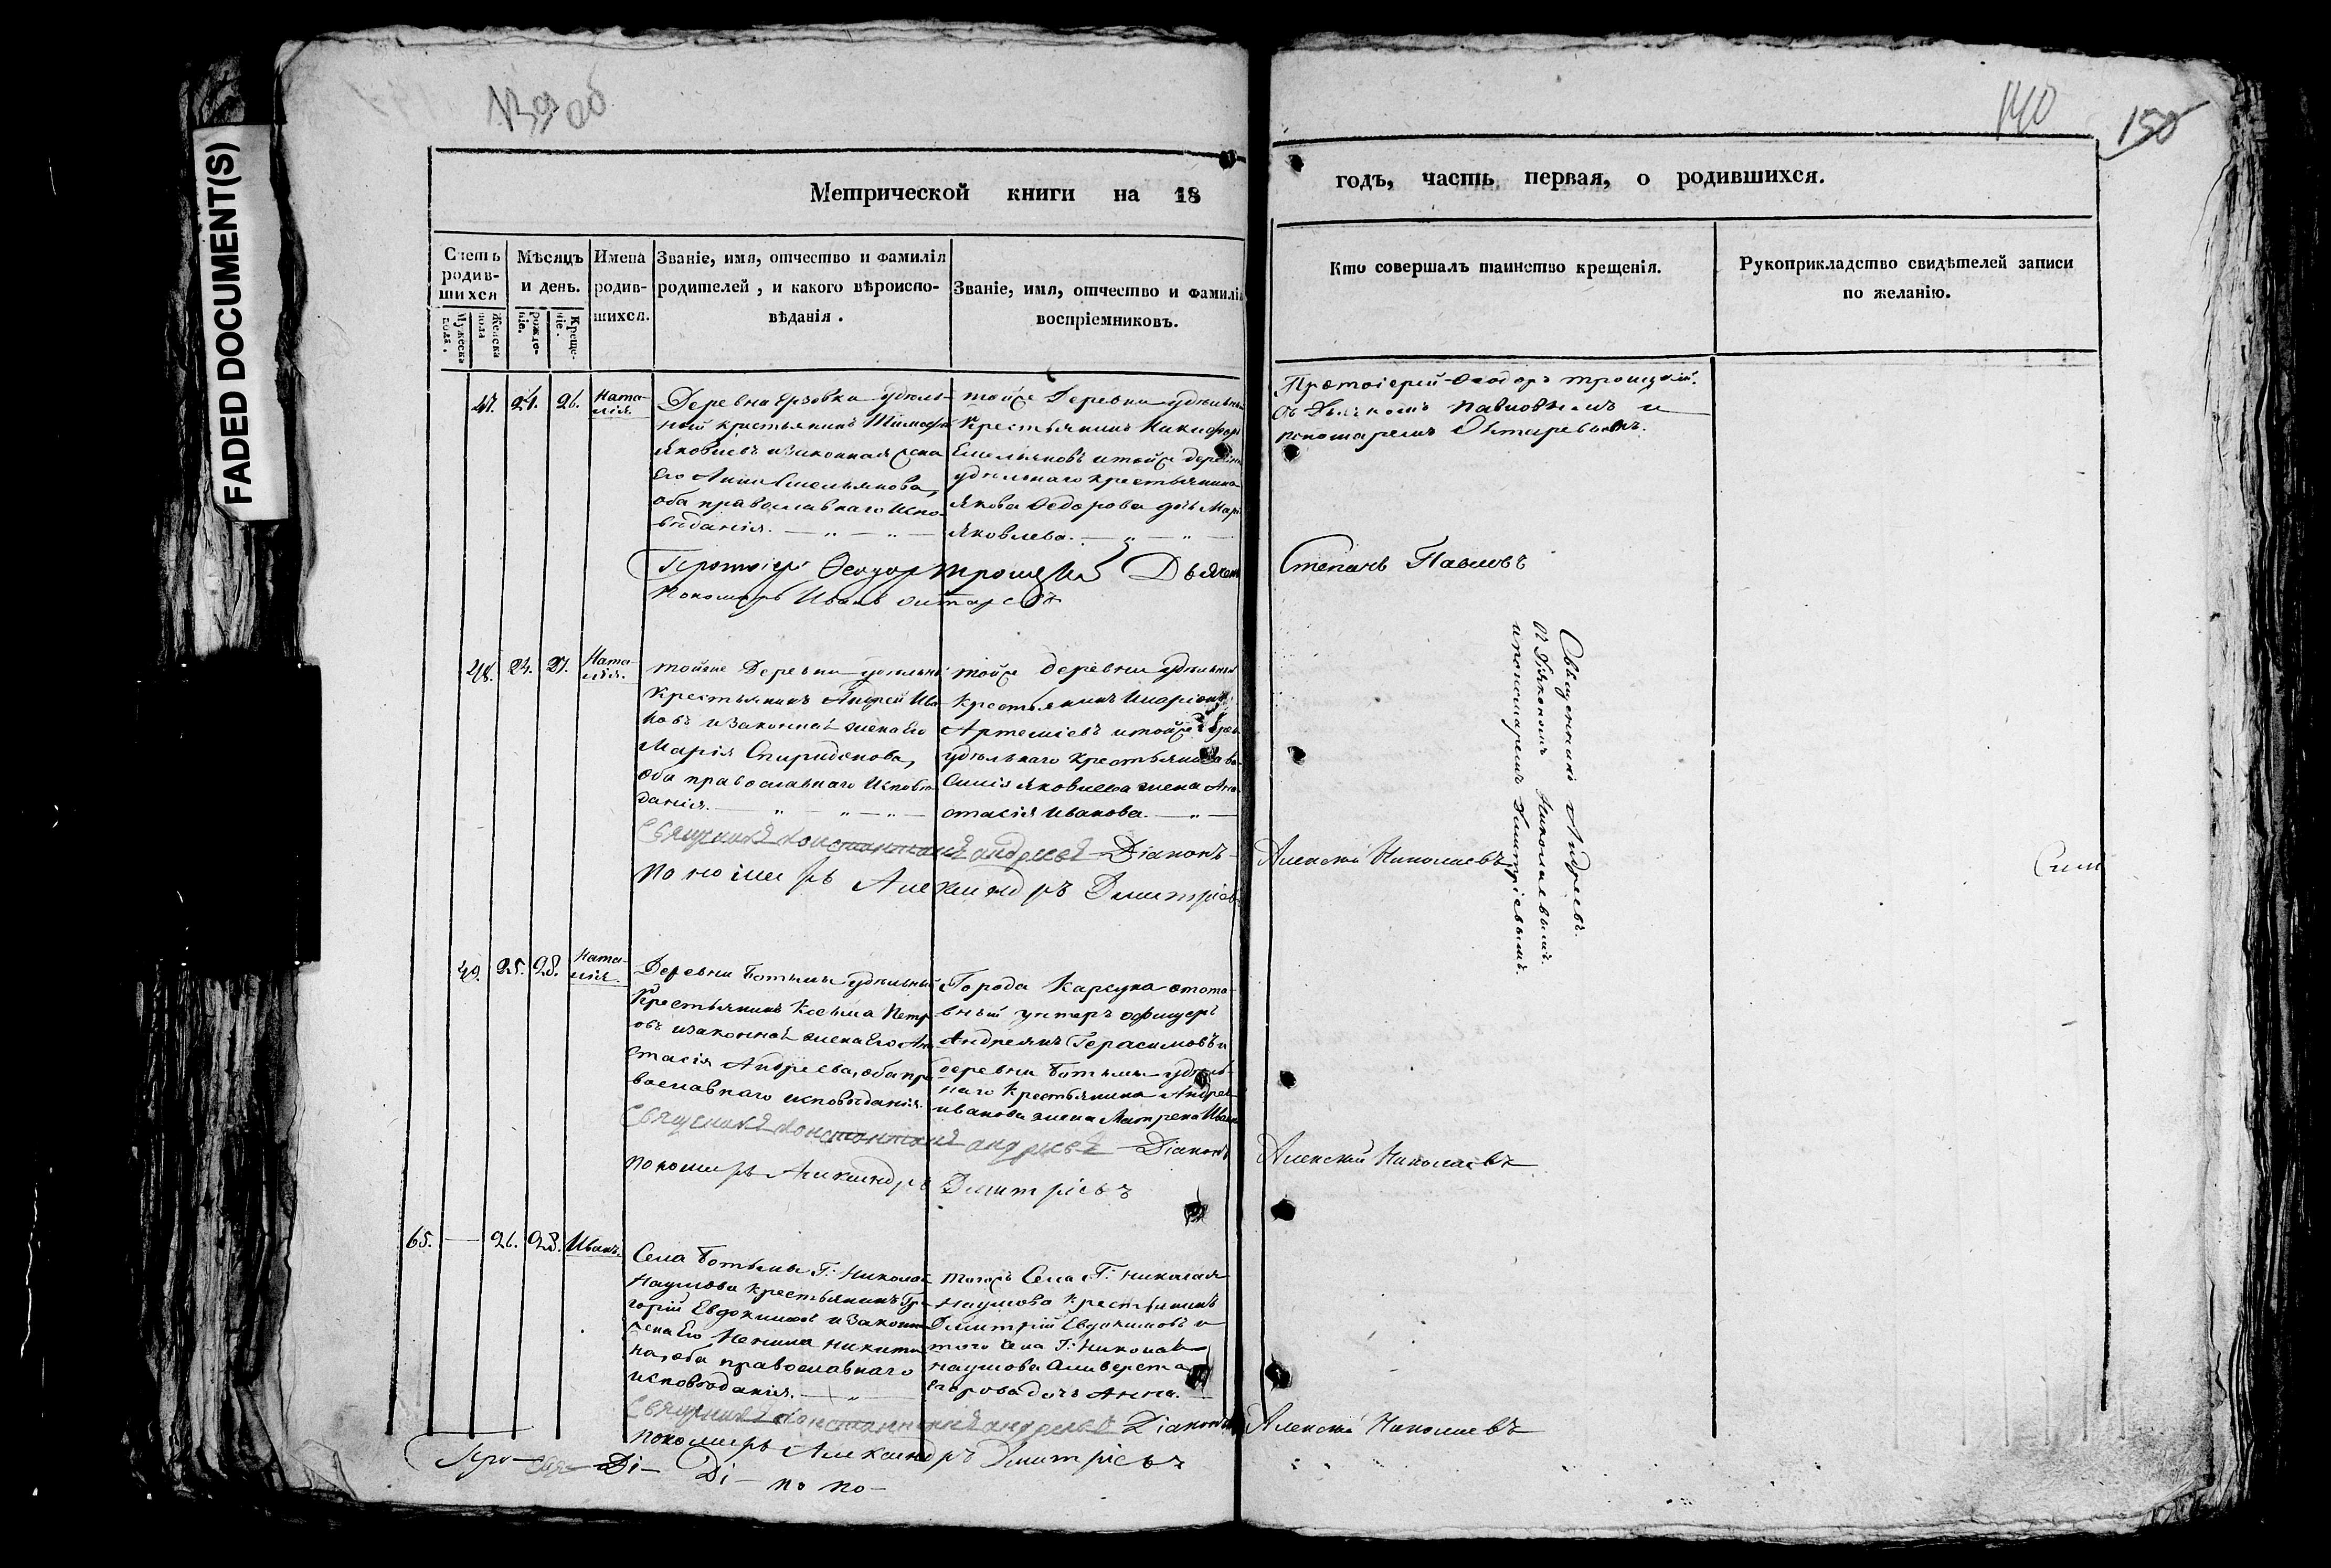 FADED DOCUMENT(S)
139 об
140
150
Метрической книги на 18
годъ, часть первая, о родившихся.
Счетъ родив-шихся
Мужеска пола.
Женска пола
Мѣсяцъ и день.
Рожде-нiе.
Креще-нiе.
Имена родив-шихся.
Званiе, имя, отчество и фамилiя
родителей, и какого вѣроиспо-
вѣданiя.
Званiе, имя, отчество и фамилiя
воспрiемниковъ.
Кто совершалъ таинство крещенiя.
Рукоприкладство свидѣтелей записи
по желанiю.
47. 24. 26. Ната-
лiя.
Деревна Ерзовка удѣль-
ный крестьянинъ Тимофей
Яковлевъ изаконная жена
Его Анна Емельянова,
оба православнаго Испо-
вѣданiя.
тойже Деревни удѣльный
Крестьянинъ Никифоръ
Емельяновъ итойже деревни
удѣльнаго крестьянина
Якова Федорова дочь Марья
Яковлева.
Протоiерей Феодоръ Троицкiй.
съ Дьякономъ Павловымъ и
пономаремъ Октаревымъ.
Протоiер. Феодор Троицкiй Дьяконъ
Степанъ Павловъ
Пономарь Иванъ Октаревъ
48. 24. 27. Ната-
лiя.
тойже Деревни удѣльный
Крестьянинъ Андрей Ива-
новъ изаконная жена Его
Марiя Спиридонова,
оба православнаго Исповѣ-
данiя.
тойже деревни удѣльный
Крестьянинъ Иларiонъ
Артемiевъ итойже дерев.
удѣльнаго крестьянина Ва-
силiя Яковлева жена Ана-
стасiя Иванова.
Священникъ Андреевъ.
съ Дiякономъ Николаевымъ.
ипономаремъ Дмитрiевымъ.
Священникъ Константинъ Андреевъ Дiаконъ
Алексѣй Николаевъ
Пономарь Александръ Дмитрiевъ
49. 25. 28. Ната-
лiя.
Деревни Ботьмы удѣльный
Крестьянинъ Косьма Петр-
овъ изаконная жена Его Ана-
стасiя Андреева, оба пра-
вославнаго исповѣданiя.
Города Карсуна отста-
вный унтеръ офицеръ
Андреянъ Герасимовъ и
деревни Ботьмы удѣль-
наго Крестьянина Андрея
иванова жена Матрена Иван
Священникъ Константинъ Андреевъ Дiаконъ
Алексѣй Николаевъ
Пономарь Александръ Дмитрiевъ
65. — 26. 28. Иванъ.
Села Ботьмы Г: Николая
Наумова Крестьянинъ Гри-
горiй Евдокимовъ изаконная
жена Его Ненила Никити-
на, оба православнаго
исповѣданiя.
тогожъ Села Г: Николая
Наумова Крестьянинъ
Дмитрiй Евдокимовъ и
того Села Г: Николая
наумова Селиверста
Егорова дочь Анна.
Священникъ Константинъ Андреевъ Дiаконъ
Алексѣй Николаевъ
Пономарь Александръ Дмитрiевъ
Про— Дi— Дi— по по—